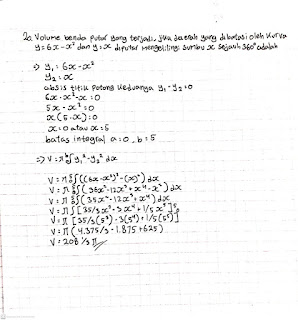 2a. Volume benda putar yang terjadi, jika daerah yang dibatasi oleh kurva
y = 6x - x² dan y = x diputar mengelilingi sumbu x sejauh 360° adalah
⇒ y₁ = 6x - x²
y₂ = x
absis titik potong keduanya y₁ - y₂ = 0
6x - x² - x = 0
5x - x² = 0
x(5 - x) = 0
x = 0 atau x = 5
batas integral a = 0, b = 5
⇒ V = π ∫ y₁² - y₂² dx
V = π ∫ ((6x - x²)² - (x)²) dx
V = π ∫ (36x² - 12x³ + x⁴ - x²) dx
V = π ∫ (35x² - 12x³ + x⁴) dx
V = π [35/3 x³ - 3x⁴ + 1/5 x⁵]
V = π [35/3 (5³) - 3(5⁴) + 1/5 (5⁵)]
V = π (4.375/3 - 1.875 + 625)
V = 208 1/3 π